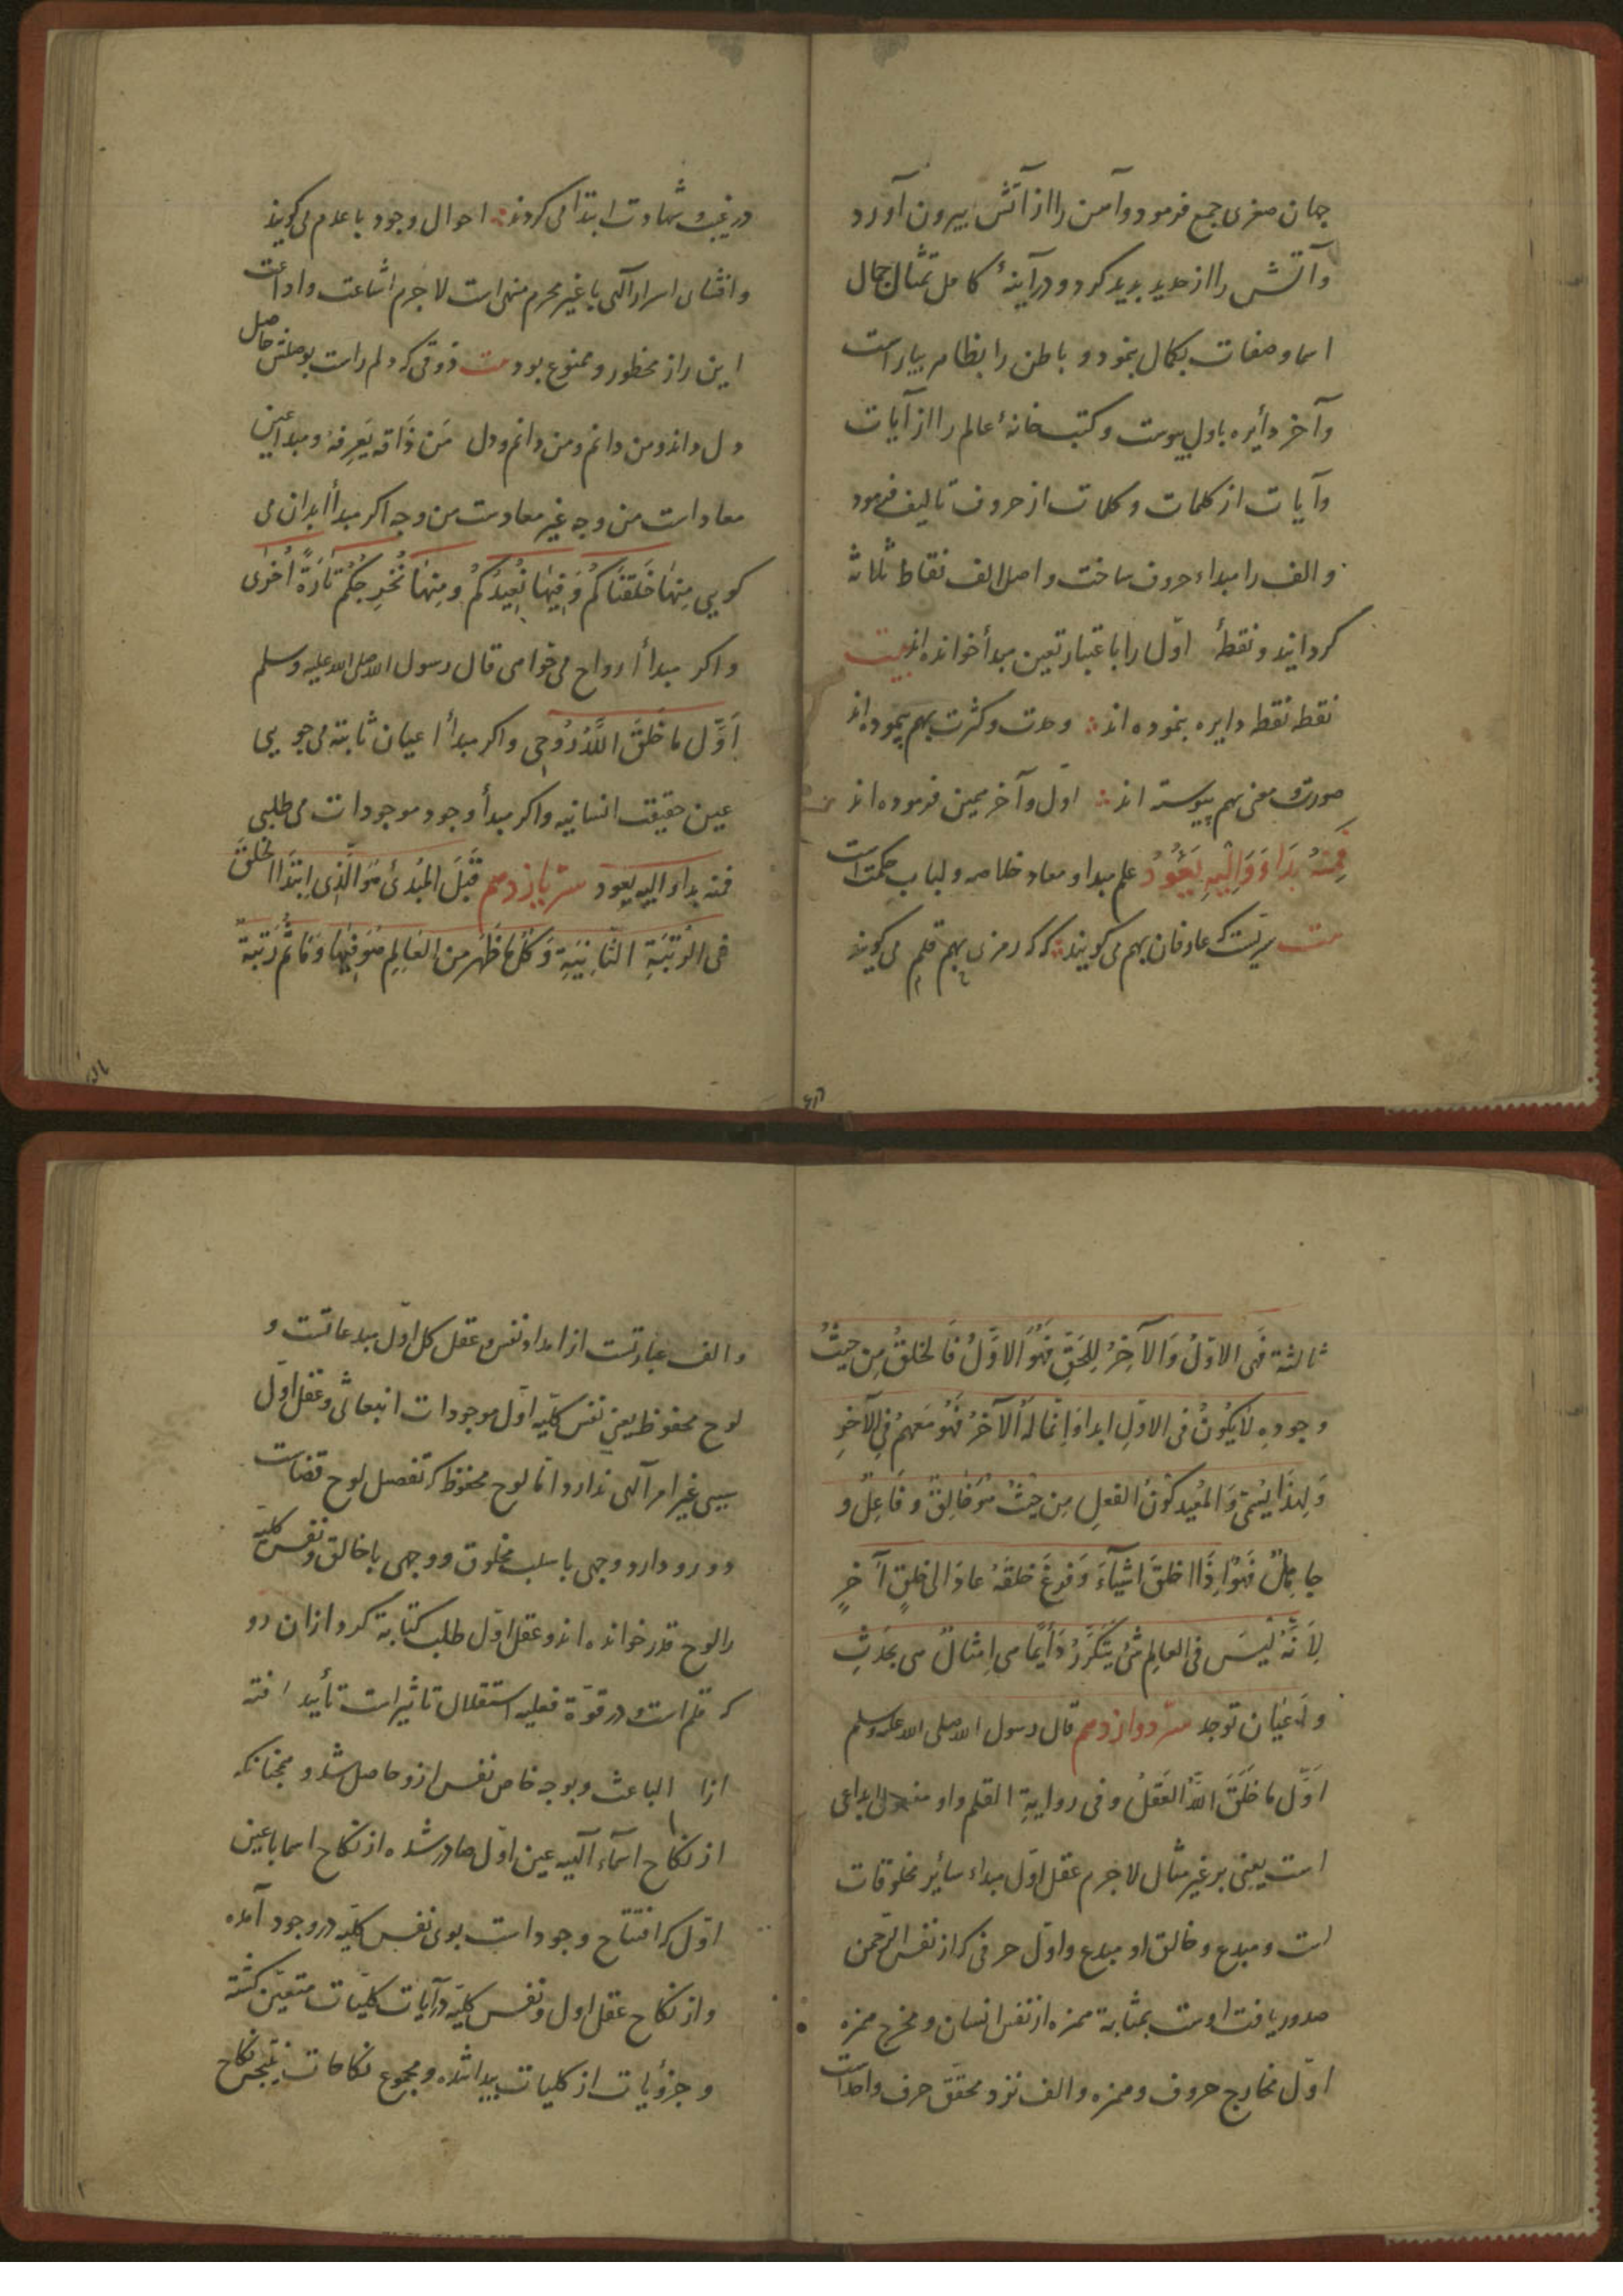 جهان صغری جمع فرمود وآهن را از آتش بیرون آورد
وآتش را از حدید پدید کرد و در آینهٔ کامل تمثال جمال
اسما وصفات بکمال بنمود و باطن را بظاهر بیاراست
وآخر دأیره باول پیوست وکتبخانهٔ عالم را از آیات
وآیات از کلمات وکلمات از حروف تالیف فرمود
والف را مبداء حروف ساخت واصل الف نقاط ثلاثه
کردانید ونقطهٔ اوّل را باعتبار تعین مبدأ خوانده اند بیت
نقطه نقطه دایره بنموده اند ∴ وحدت وکثرت بهم پیموده اند
صورت ومعنی بهم پیوسته اند ∴ اوّل وآخر همین فرموده اند
فَمِنْهُ بَدَاءَ وَاِلَیْهِ یَعُودُ علم مبدا و معاد خلاصه ولباب حکمت است
بیت سریست که عارفان بهم می کویند ∴ که که رمزی بهم قلم می کویند
در غیب وشهادت ابتدا می کردند ∴ احوال وجود با عدم می کویند
وافشای اسرار آلهی با غیر محرم منهی است لاجرم اشاعت واذاعت
این راز محظور وممنوع بود بیت ذوقی که دلم راست بوصلش حاصل
دل داند ومن دانم ومن دانم ودل مَن ذَاقه یَعرِفهُ ومبدا عین
معاد است من وجه غیر معادست من وجه اکر مبدأ ابدان می
کویی مِنهَا خَلَقنَاکُم وَفِیهَا نُعِیدُکُم ومِنهَا نُخرِجُکُم تَارَةً اُخرٰی
واکر مبدأ ارواح می خواهی قال رسول الله صلی الله علیه وسلم
اَوَّل مَا خَلَقَ اللهُ رُوحِی واکر مبدأ اعیان ثابته می جویی
عین حقیقت انسانیه واکر مبدأ وجود موجودات می طلبی
فمنه بداء والیه یعود سرّ یازدهم قِیلَ المُبدئُ هُوَ الَّذِی ابتَدَا الخَلقَ
فی الرُتبَةِ الثَّانِیَةِ وَکُلّ مَا ظَهَر من العَالِم هُوَ فِیهَا وَمَا ثَمَّ رُتبَة
ثالثة فَهی الاوّل وَالآخِرُ لِلحَقّ فَهُوَ الاَوَّلُ فَالخلقُ مِن حیثُ
وجودِهِ لَا یَکُونُ فی الاوّلِ ابدا وَاِنّما لَهُ الآخرُ فَهُو مَعَهم فِی الآخرِ
وَلِهذَا یُسمّی وَالمُعِید کَونَ الفعل مِن حَیثُ هُوَ خَالِقٌ وفَاعِلٌ و
جَاعِلٌ فَهُوَ اِذَا خَلَقَ اشیَآءَ وَفرغَ خلقَهُ عادَ الی خَلقٍ آخرٍ
لِاَنَّهُ لَیسَ فی العالِم شئٌ یَتَکَرَّرُ دَأیمًا هی اِمثالٌ هی یحدث
واَعیَان توجد سرّ دوازدهم قال رسول الله صلی الله علیه وسلم
اَوّل مَا خَلَقَ اللهُ العَقلُ وفی روایةِ القلم واو مفعول ابداعی
است یعنی بر غیر مثال لاجرم عقل اوّل مبداء سأیر مخلوقات
است ومبدع وخالق او مبدع واوّل حرفی که از نفس الرّحمن
صدور یافت اوست بمثابة همزه از نفس انسان ومخرج همزه
اوّل مخارج حروف وهمزه والف نزد محقق حرف واحد است
والف عبارتست از امداد نفس وعقل کل اوّل مبدعاتست و
لوح محفوظ یعنی نفس کلّیه اوّل موجودات انبعاثی وعقل اوّل
سببی غیر امر آلهی ندارد امّا لوح محفوظ که تفصیل لوح قضاست
دو رو دارد وجهی با سبب مخلوق و وجهی با خالق ونفس کلّیه
را لوح قدر خوانده اند وعقل اوّل طلب کتابة کرد ازان رو
که قلم است ودر قوّة فعلیه استقلال تاثیر است تأیید افته
ازا الباعث وبوجه خاص نفس ازو حاصل شد وهمچنانکه
از نکاح اسمآء آلهیه عین اوّل صادر شده از نکاح اسما با عین
اوّل که افتتاح وجود است بوی نفس کلیّه در وجود آمده
واز نکاح عقل اول ونفس کلیّه در آیات کلیّات متعیّن کشته
وجزؤیات از کلیات پیدا شده ومجموع نکاحات نتیجهٔ نکاح